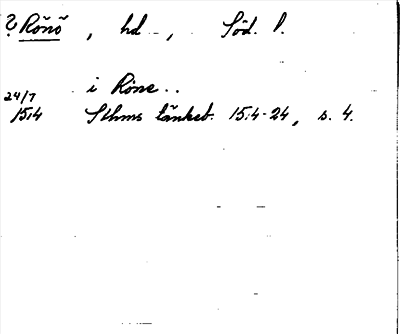 ? Rönö , hd , Söd. l.
i Röne..
24/7
1514 Sthms tänkeb. 1514-24, s. 4.